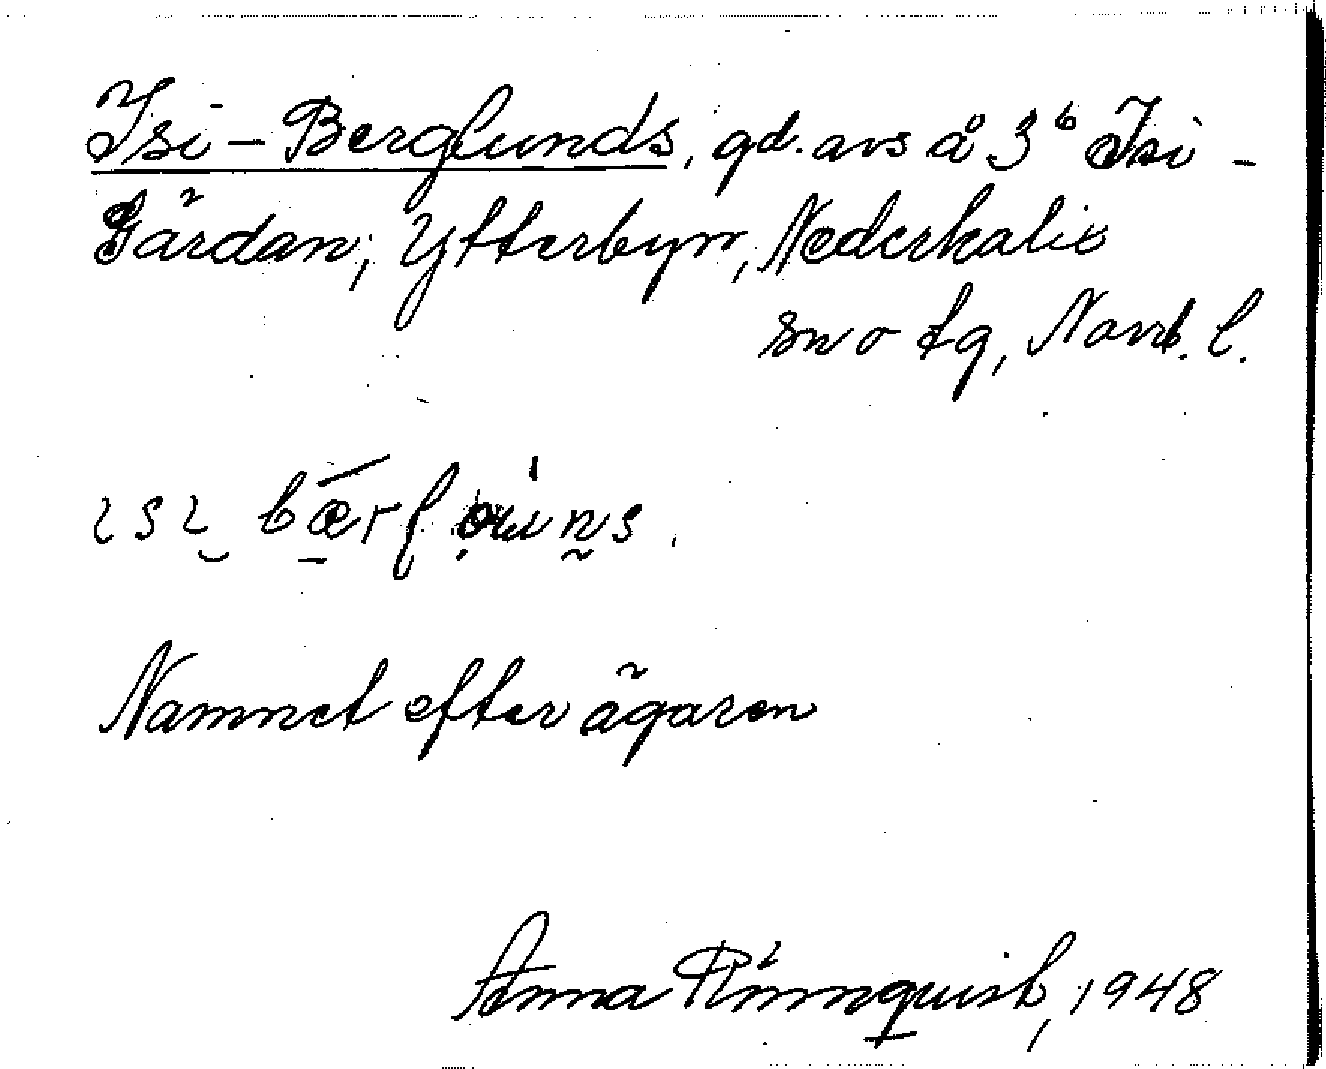 Isi-Berglunds, gd. avs å 3⁶ Isi-
Gärdan, Ytterbyn, Nederkalix
sn o tg, Norrb. l.
Namnet efter ägaren
Anna Rönnquist, 1948